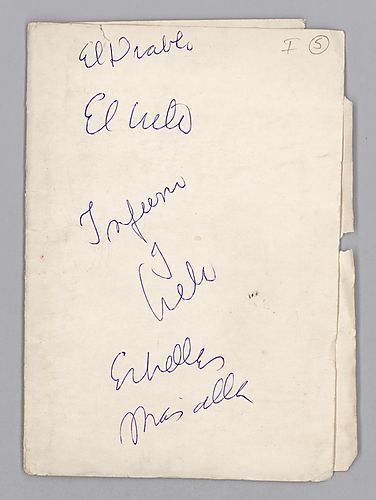 El Diablo
I 5
El Cielo
Infierno
y
Cielo
Estrellas
Mas alla